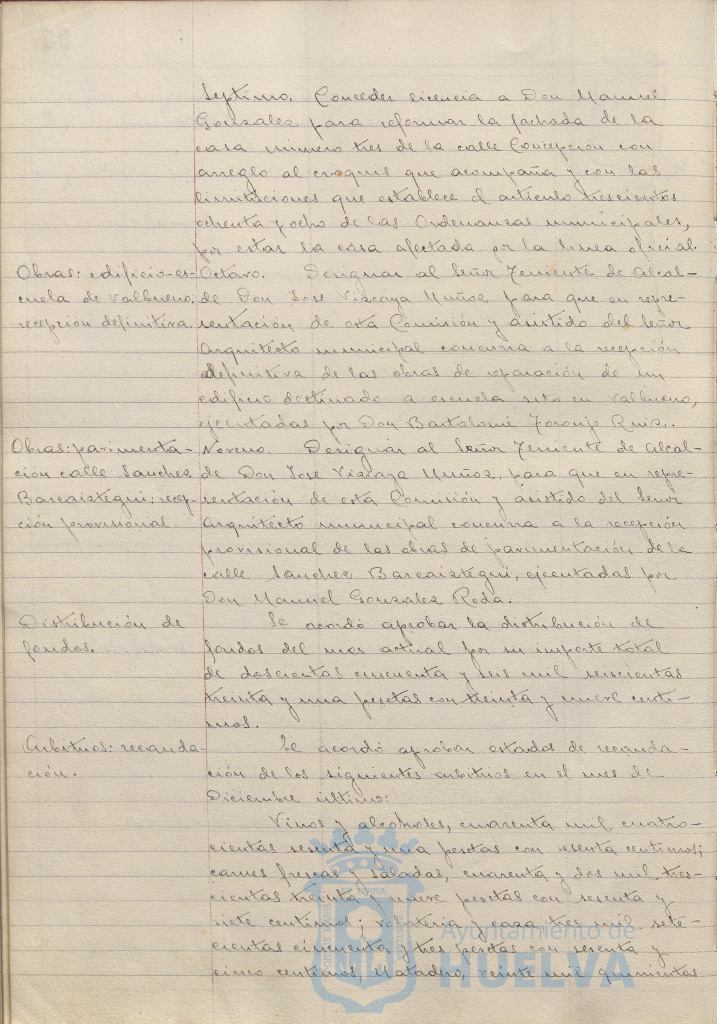 Septimo. Conceder licencia a Don Manuel
Gonzalez para reformar la fachada de la
casa numero tres de la calle Concepcion con
arreglo al croquis que acompaña y con las
limitaciones que establece el articulo trescientos
ochenta y ocho de las Ordenanzas municipales,
por estar la casa afectada por la linea oficial.
Obras: edificio-es-
cuela de Valbueno:
recepción definitiva.
Octavo. Designar al Señor Teniente de Alcal-
de Don Jose Vizcaya Muñoz, para que en repre-
sentación de esta Comisión y asistido del Señor
Arquitecto municipal concurra a la recepción
definitiva de las obras de reparación de un
edificio destinado a escuela sito en Valbueno,
ejecutadas por Don Bartolomé Toronjo Ruiz.
Obras: pavimenta-
ción calle Sanchez
Barcaiztegui; recep-
ción provisional.
Noveno. Designar al Señor Teniente de Alcal-
de Don Jose Vizcaya Muñoz, para que en repre-
sentación de esta Comisión y asistido del Señor
Arquitecto municipal concurra a la recepción
provisional de las obras de pavimentación de la
calle Sanchez Barcaiztegui, ejecutadas por
Don Manuel Gonzalez Roda.
Distribución de
fondos.
Se acordó aprobar la distribución de
fondos del mes actual por su importe total
de doscientas cincuenta y seis mil seiscientas
treinta y una pesetas con treinta y nueve centi-
mos.
Arbitrios: recauda-
ción.
Se acordó aprobar estados de recauda-
ción de los siguientes arbitrios en el mes de
Diciembre último:
Vinos y alcoholes, cuarenta mil cuatro-
cientas sesenta y una pesetas con centimos;
carnes frescas y saladas, cuarenta y dos mil tres-
cientas treinta y nueve pesetas con sesenta y
siete centimos; volateria y caza tres mil sete-
cientas cincuenta y tres pesetas con sesenta y
cinco centimos, Matadero, veinte mil quinientas
Ayuntamiento de
HUELVA